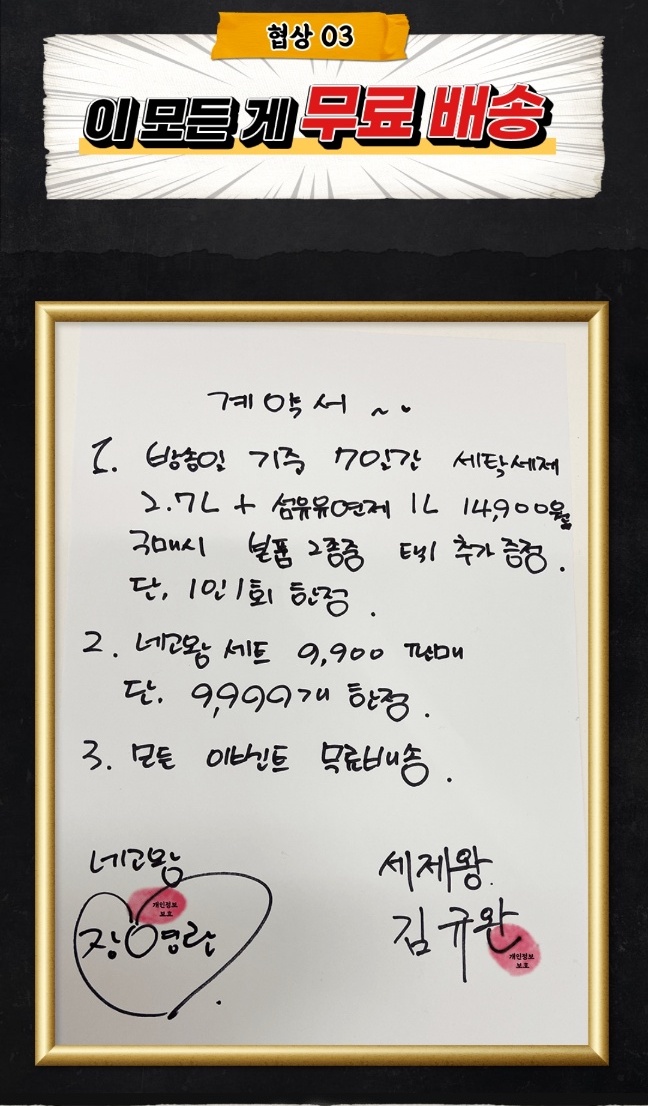 협상 03
이 모든 게 무료 배송
계약서 ~..
1. 방송일 기준 7일간 세탁세제
2.7L + 섬유유연제 1L 14,900원
구매시 본품 2종중 택1 추가 증정.
단, 1인 1회 한정.
2. 네고왕 세트 9,900 판매
단, 9,999개 한정.
3. 모든 이벤트 무료배송.
네고왕 세제왕.
장영란 김규완
개인정보 보호
개인정보 보호